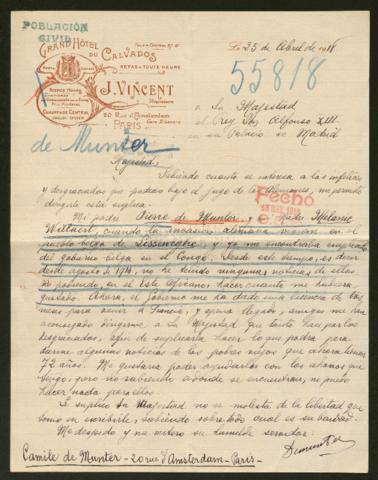 POBLACIÓN
CIVIL
GRAND HOTEL
DU CALVADOS
REPAS A TOUTE HEURE
J. VINCENT
Propriétaire
20 Rue d'Amsterdam
PARIS
CHAUFFAGE CENTRAL
Le 25 de Abril de 1918
55818
de Munter
a Su Magestad
el Rey Alfonso XIII.
en su Palacio de Madrid
Magestad,
Sabiendo cuanto se interesa a los infelices
y desgraciados que padecen bajo el jugo de los Alemanes, me permito
dirigirle esta suplica:
Fecho
1918
Mi padre Pierre de Munter, y Madre Melanie
Wettaert, cuando la invasion alemana vivian en el
pueblo belga de Lessineghe, y yo me encontraba empleado
del gobierno belga en el Congo. Desde este tiempo, es decir
desde agosto de 1914, no he tenido ningunas noticias de ellos
no pudiendo, en el Este Africano, hacer cuanto me hubiera
gustado. Ahora, el gobierno me ha dado una licencia de
meses para venir a Francia, y apenas llegado, amigos me han
aconsejado dirigirme a Su Magestad que tanto hace por los
desgraciados, afin de suplicarle hacer lo que podra para
darme algunas noticias de los pobres viejos que ahora tienen
72 años. Me gustaria poder ayudarlos con los ahorros que
tengo, pero no sabiendo adonde se encuentran, no puedo
hacer nada por ellos.
Le suplico Su Magestad no se moleste de la libertad que
tomo en escribirle, sabiendo sobre todo cual es su caridad
Me despido y me nombro su humilde servidor.
Demunter
Camile de Munter - 20 rue d'Amsterdam - Paris -